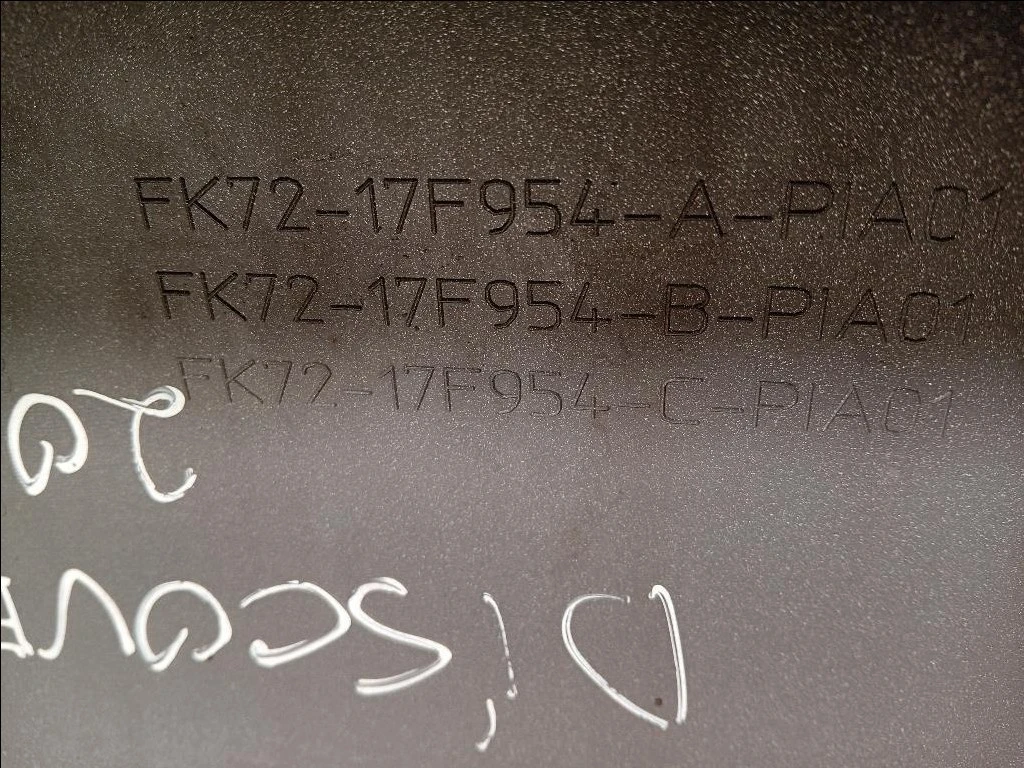 FK72-17F954-A-PIA01
FK72-17F954-B-PIA01
FK72-17F954-C-PIA01
DiSCOV
20